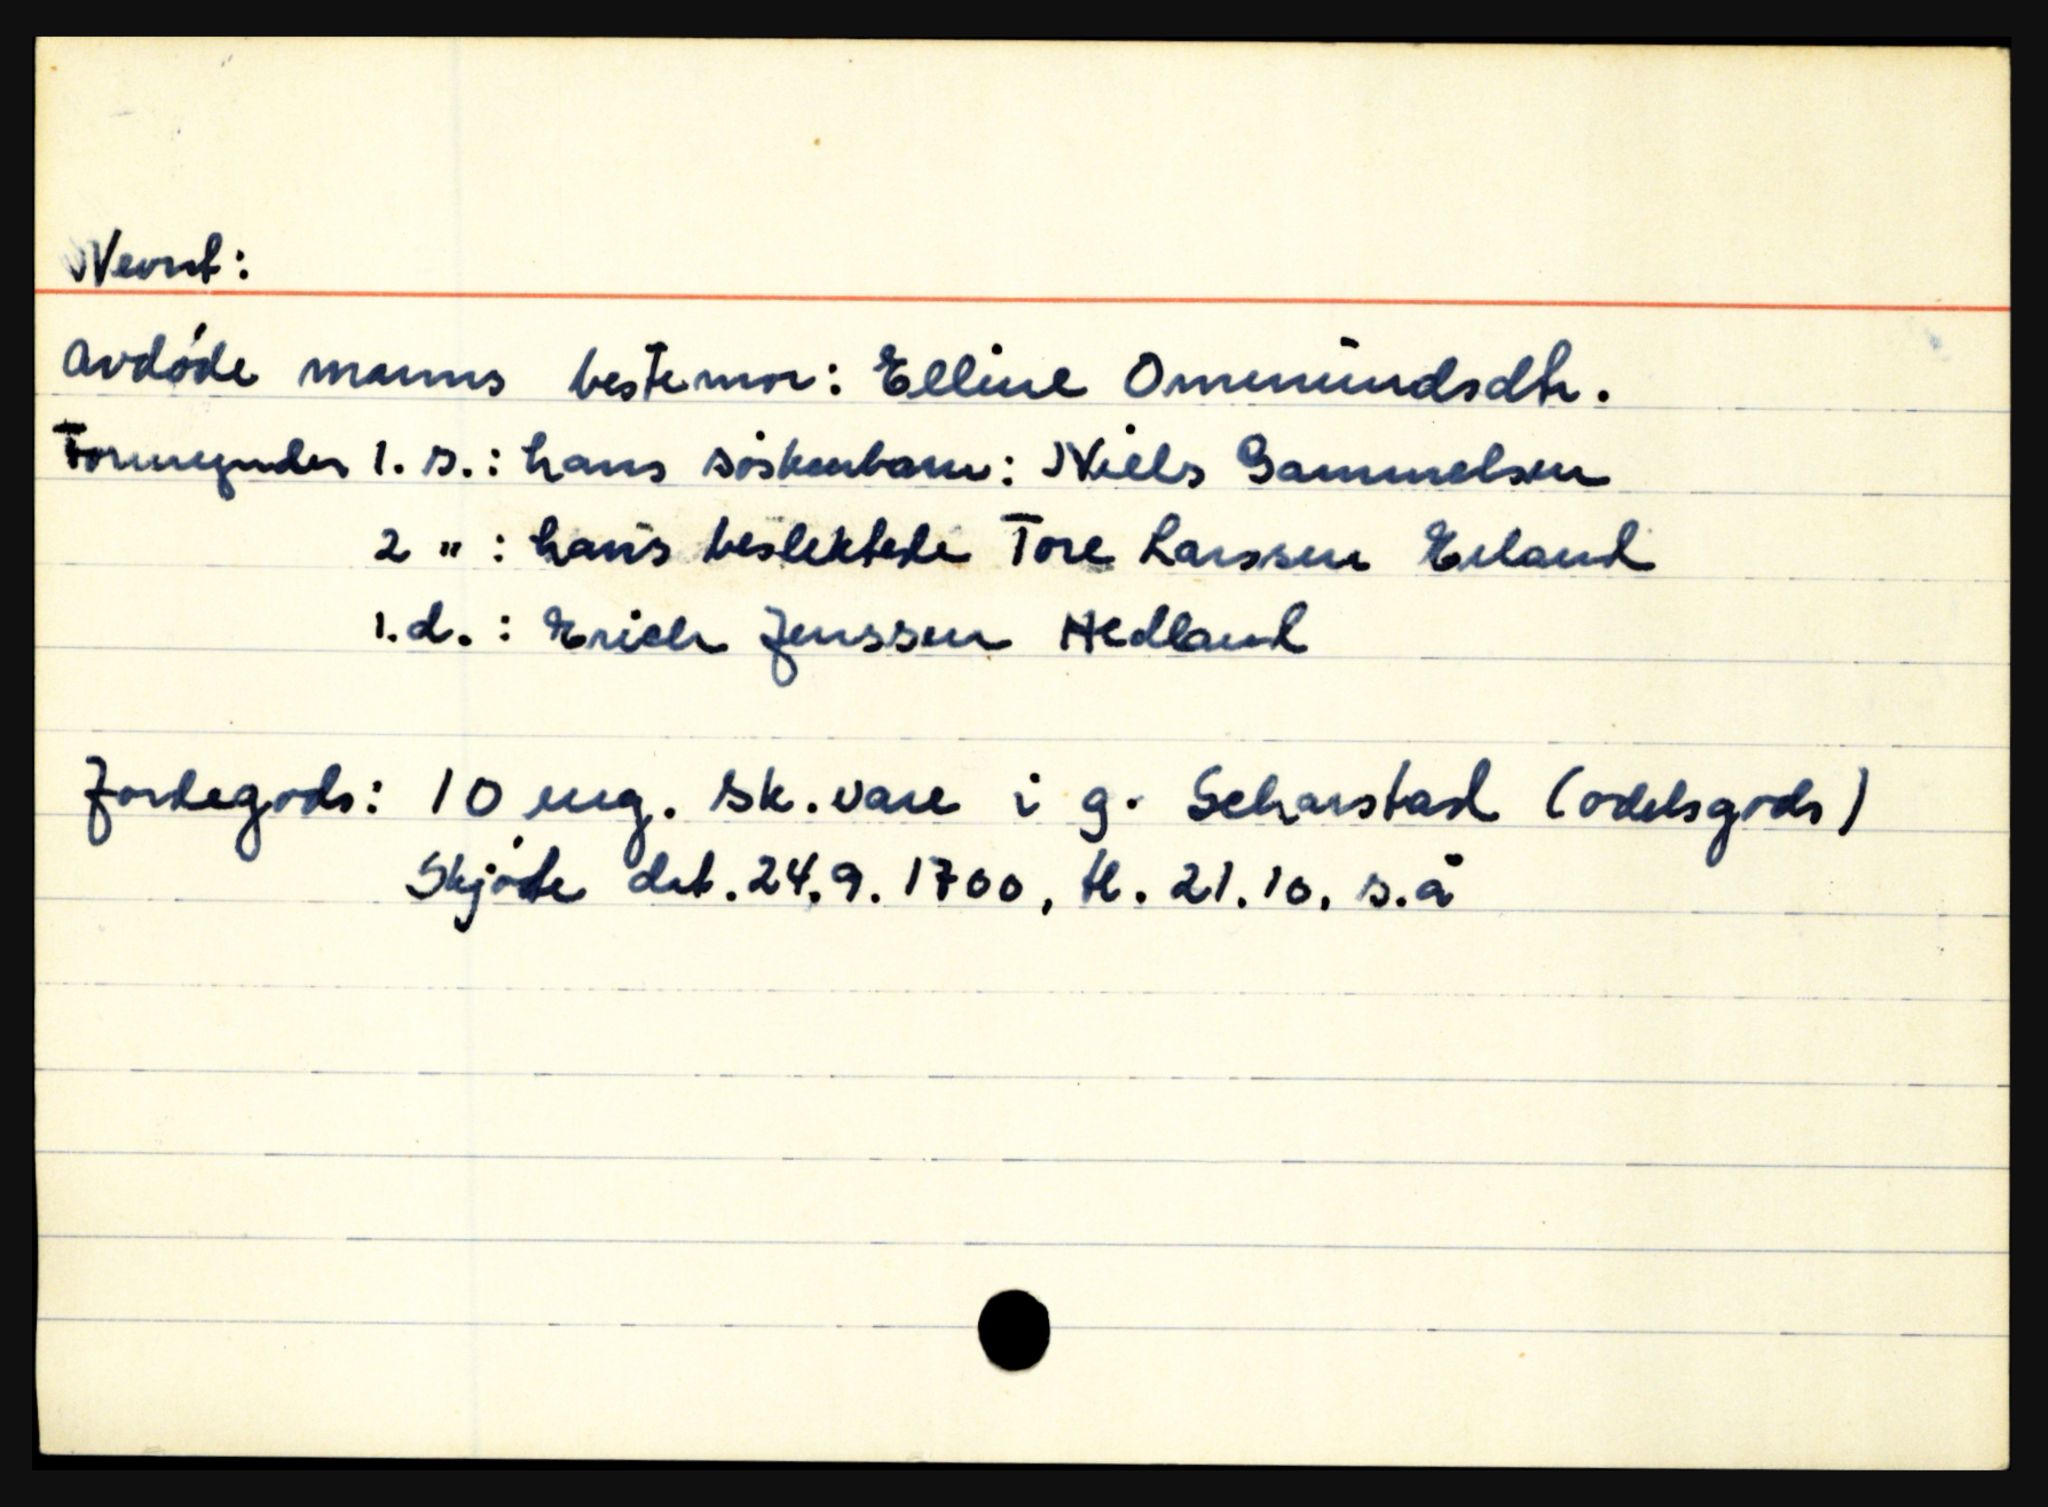 Nevnt:
Avdøde manns bestemor: Elline Ommundsdtr.
Formynder 1. s.: hans søskenbarn: Niels Gammelsen
2 " : hans beslektede Tore Larssen Erland
1.d. : Erich Jenssen Hedland
Jordegods: 10 eng. sk.vare i g. Scharstad (odelsgods)
Skjøte dat. 24.9. 1700, tl. 21.10. s.å